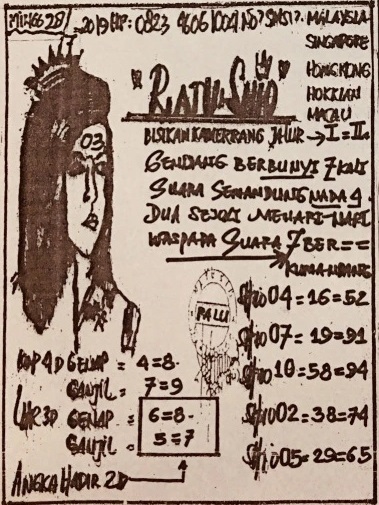 MINGG 28 / 2019 HP: 0823 4606 1004 NO? SMSI?.
MALAYSIA
SINGAPORE
HONGKONG
HOKKIAN
MACAU
"RATU SHIO"
03
BISIKAN KAMERRANG JALUR → I = II.
GENDANG BERBUNYI 7 KALI
SUARA SENANDUNG NADA 4.
DUA SEJOLI MENARI-NARI
WASPADA SUARA 7 BER==
KUMANDANG
PALU
SHIO 04=16=52
SHIO 07=19=91
SHIO 10=58=94
SHIO 02=38=74
SHIO 05=29=65
KOP 4D GENAP = 4=8.
GANJIL = 7=9
3D GENAP = 6=8.
GANJIL = 5=7
ANGKA HADIR 2D